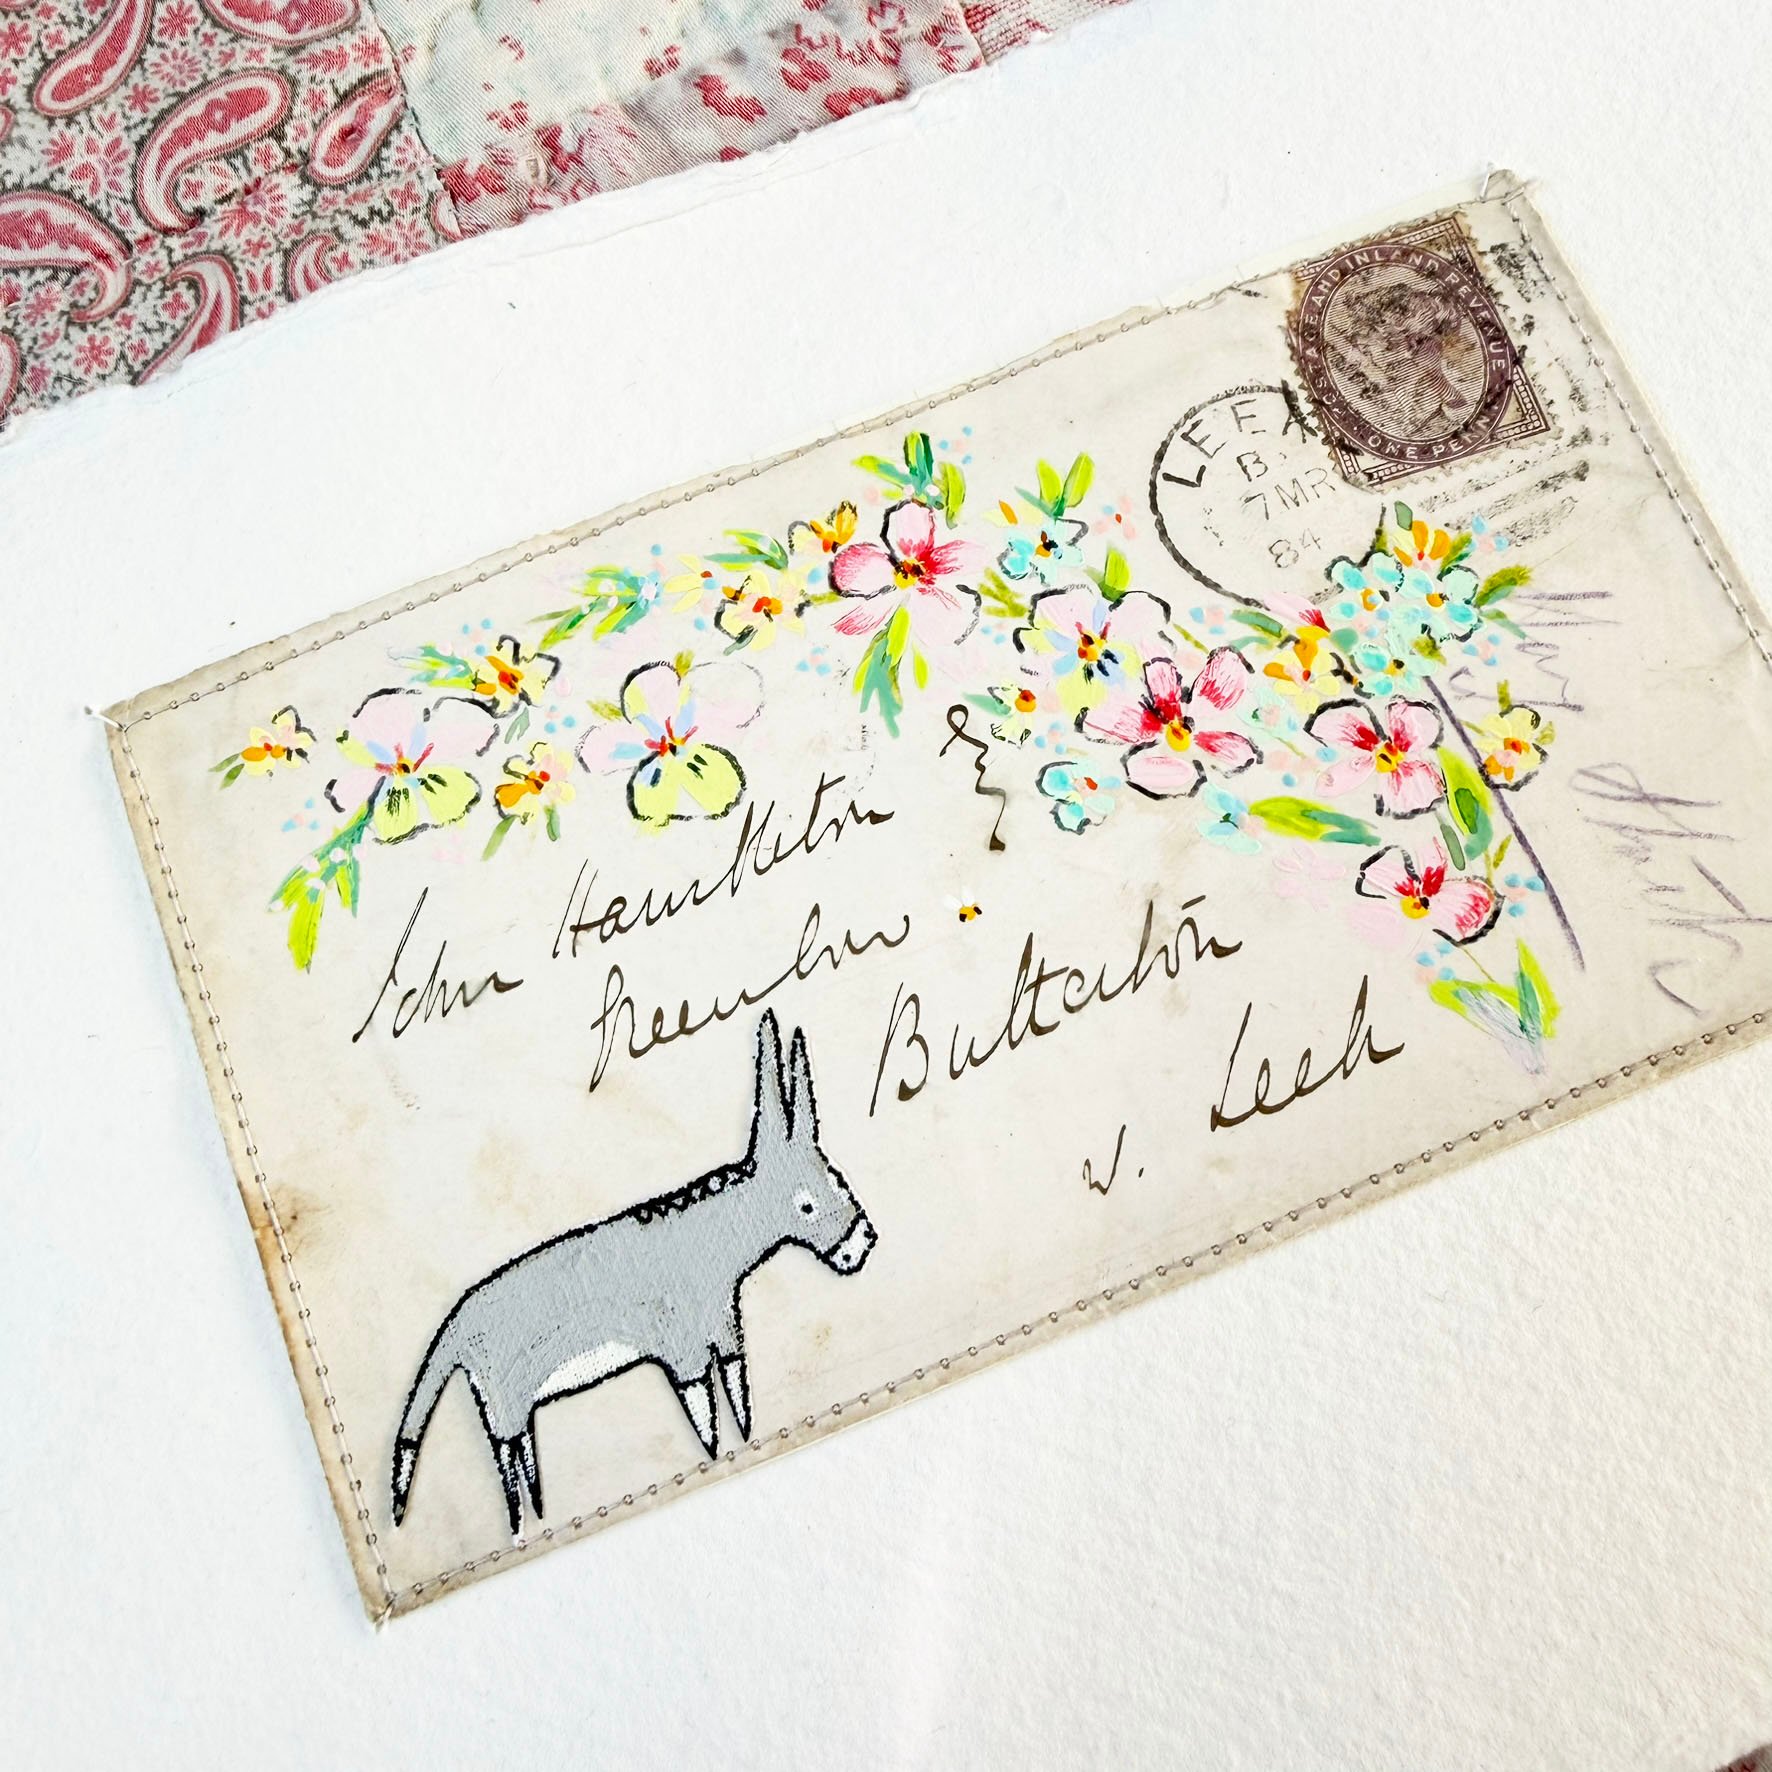 POSTAGE AND INLAND REVENUE
ONE PENNY
LEEK
B
7 MR
84
John Hamilton Esq
Greenlow
Butterton
N. Leek